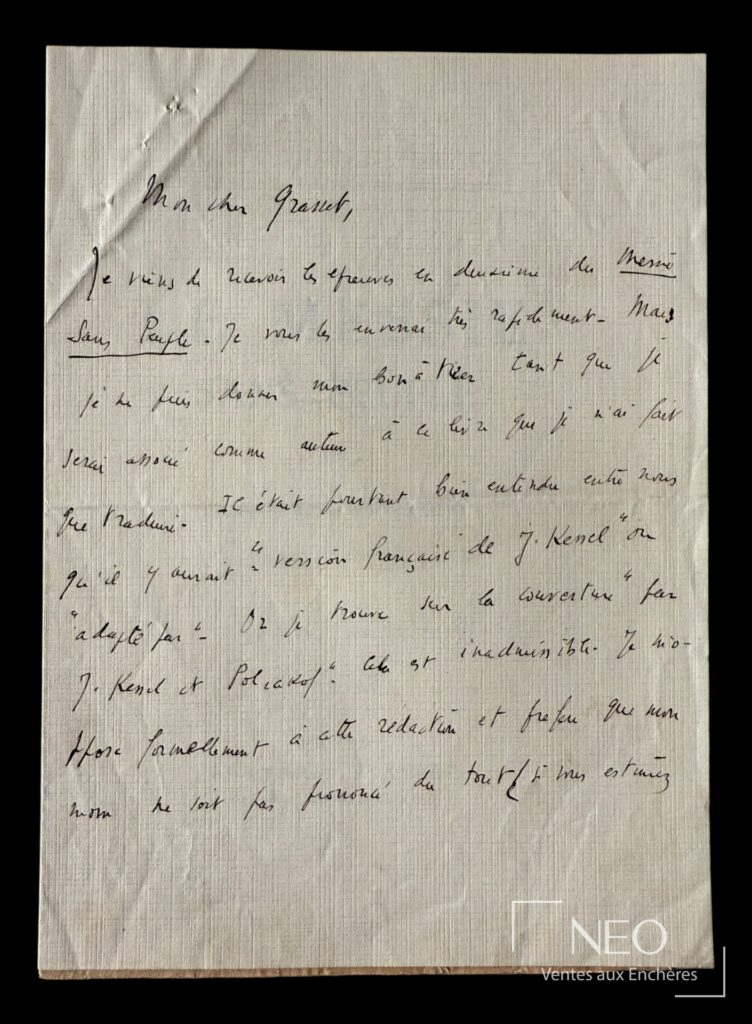 Mon cher Grasset,
Je viens de recevoir les épreuves en deuxième du Messie
Sans Peuple - Je vous les enverrai très rapidement - Mais
je ne puis donner mon bon à tirer tant que je
serai associé comme auteur à ce livre que je n'ai fait
que traduire - Il était pourtant bien entendu entre nous
qu'il y aurait "version française de J. Kessel" ou
"adapté par" - Or je trouve sur la couverture "par
J. Kessel et Poliakof". Cela est inadmissible. Je m'op-
pose formellement à cette rédaction et préfère que mon
nom ne soit pas prononcé du tout (si vous estimez
NEO
Ventes aux Enchères